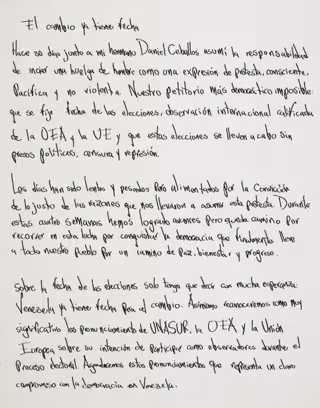 El cambio ya tiene fecha
Hace 30 días junto a mi hermano Daniel Ceballos asumí la responsabilidad
de iniciar una huelga de hambre como una expresión de protesta, consciente,
Pacífica y no violenta. Nuestro petitorio más democrático imposible:
que se fije fecha de las elecciones, observación internacional calificada
de la OEA y la UE y que estas elecciones se lleven a cabo sin
presos políticos, censura y represión.
Los días han sido lentos y pesados pero alimentados por la Convicción
de lo justo de las razones que nos llevaron a asumir esta protesta. Durante
estas cuatro semanas hemos logrado avances pero queda camino por
recorrer en esta lucha por conquistar la democracia que finalmente lleve
a todo nuestro pueblo por un camino de Paz, bienestar y progreso.
Sobre la fecha de las elecciones solo tengo que decir con mucha esperanza:
Venezuela ya tiene fecha para el cambio. Asimismo reconocemos como muy
significativo los pronunciamiento de UNASUR, la OEA y la Unión
Europea sobre su intención de participar como observadores durante el
Proceso electoral. Agradecemos estos pronunciamientos que representa un claro
compromiso con la democracia en Venezuela.